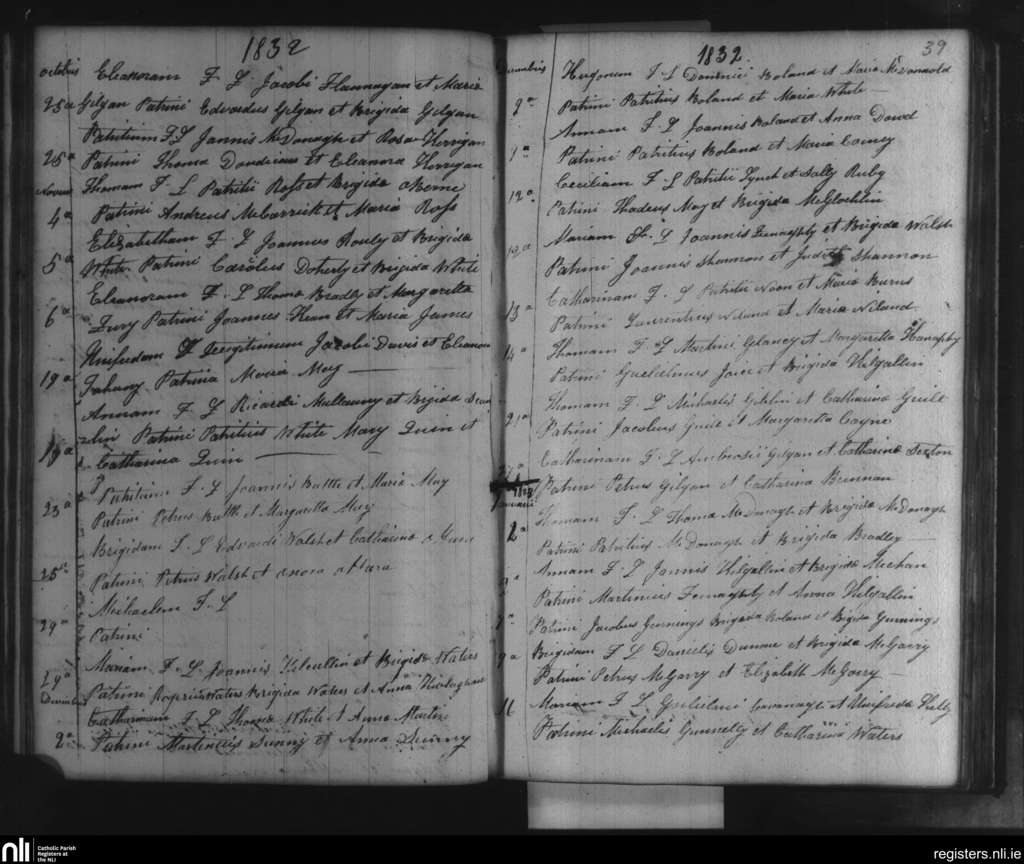 1832
octobris Eleanoram F L Jacobi Flannagan et Maria
25a Gilgan Patrini Edvardus Gilgan et Brigida Gilgan
Patritium F L Joannis McDonagh et Rosa Kerrigan
28a Patrini Thoma et Eleanora Kerrigan
Thomam F L Patritii Ross et Brigida
4a Patrini Andreus et Maria Ross
Elizabetham F L Joannes Rouly et Brigida
5a White Patrini Carolus Doherty et Brigida White
Eleanoram F L Thoma Bradly et Margaretta
6a Fury Patrini Joannes Kean et Maria James
F Jacobi Davis et Eleanora
19a Fahary Patrina Maria May
Annam F L Ricardi et Brigida
19a Patrini Patritius White Mary Quin et
Catharina Quin
Patritium F L Joannis Battle et Maria May
23a Patrini Petrus Battle et Margaretta May
Brigidam F L Edvardi Walsh et Catharina
25a Patrini Petrus Walsh et Onora oHara
Michaelem F L
29a Patrini
Mariam F L Joannis et Brigida Waters
29a Patrini Rogerius Waters Brigida Waters et Anna
Decembris Catharinam F L Thoma White et Anna Martin
2a Patrini Martinus Dunny et Anna Dunny
1832
39
Decembris Hugonem F L Dominici Boland et Maria McDonnold
9a Patrini Patritius Boland et Maria White
Annam F L Joannis Boland et Anna Dowd
9a Patrini Patritius Boland et Maria
Ceciliam F L Patritii Lynch et Sally Ruby
12a Patrini Thadeus May et Brigida McGlochlin
Mariam F L Joannis et Brigida Walsh
Patrini Joannis Shannon et Judith Shannon
Catharinam F L Patritii Noon et Maria Burns
13a Patrini Laurentius Niland et Maria Niland
Thomam F L Martini Gelancy et Margaretta
14a Patrini Guelielmus Joice et Brigida Kilgallin
Thomam F L Michaelis et Catharina
21a Patrini Jacobus et Margaretta Coyne
Catharinam F L Ambrosii Gilgan et Catharina Sexton
Patrini Petrus Gilgan et Catharina Brennan
Januarii Thomam F L Thoma McDonagh et Brigida McDonagh
2a Patrini Patritius McDonagh et Brigida Bradley
Annam F L Joannis Kilgallin et Brigida Meehan
Patrini Martinus et Anna Kilgallin
Patrini Jacobus Gunnings Brigida Boland et Brigida Gunnings
9a Brigidam F L Danielis Dunne et Brigida McGarry
Patrini Petrus McGarry et Elizabeth McGarry
16 Mariam F L Guelielmi Cavanagh et Winifreda
Patrini Michaelis et Catharina Waters
nli
Catholic Parish
Registers at
the NLI
registers.nli.ie